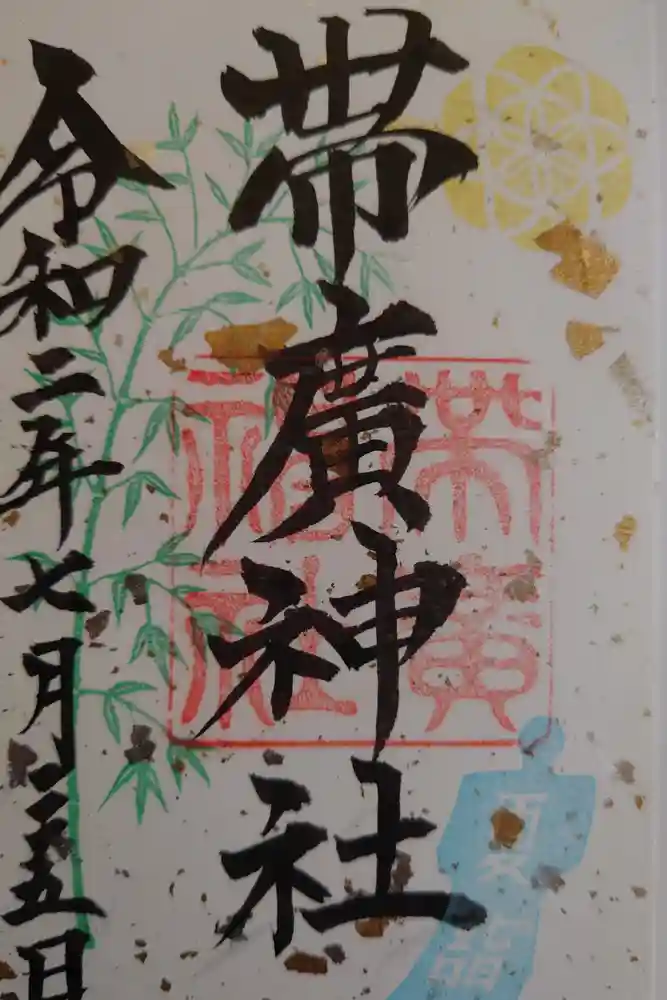 帯廣神社
帯廣
神社
令和二年七月二五日